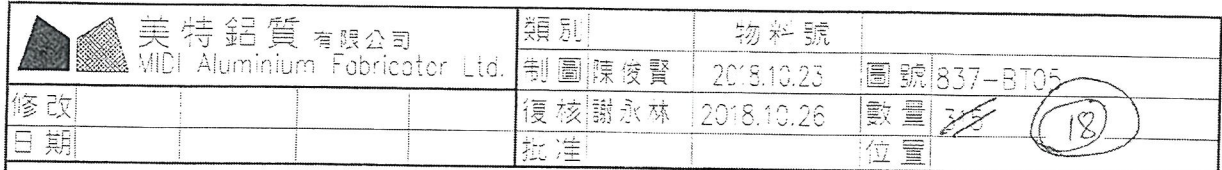 美特鋁質 有限公司
MIDI Aluminium Fabricator Ltd.
類別 物料號
制圖 陳俊賢 2018.10.23 圖號 837-BT05
修改 復核 謝永林 2018.10.26 數量 18
日期 批准 位置